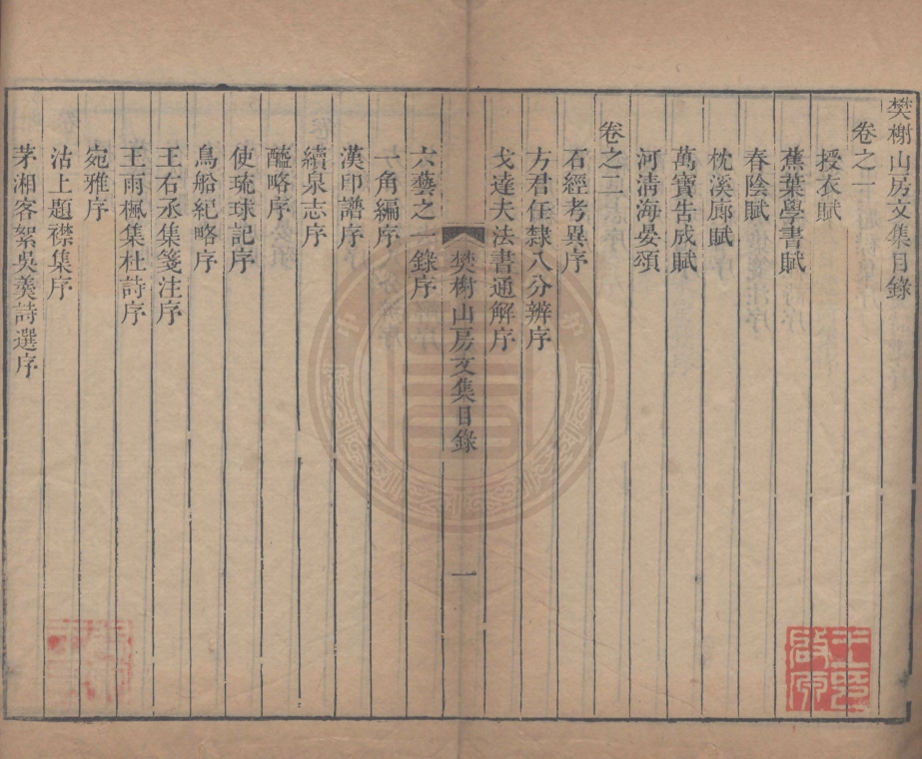 樊榭山房文集目錄
卷之一
授衣賦
蕉葉學書賦
春陰賦
枕溪廊賦
萬寶告成賦
河清海晏頌
卷之二
石經考異序
方君任隸八分辨序
戈達夫法書通解序
樊榭山房文集目錄
一
六藝之一錄序
一角編序
漢印譜序
續泉志序
醢略序
使琉球記序
鳥船紀略序
王右丞集箋注序
王雨楓集杜詩序
宛雅序
沽上題襟集序
茅湘客絮吳羹詩選序